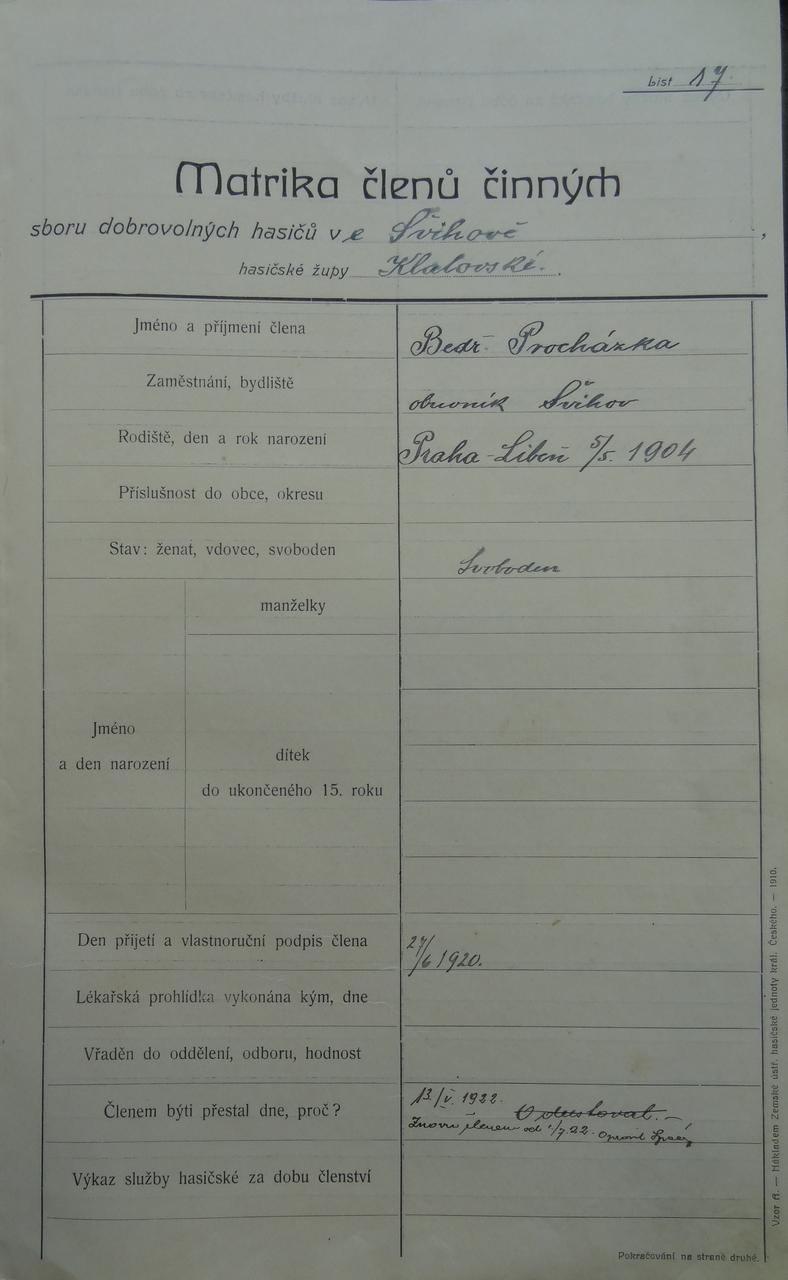 List 17.
Matrika členů činných
sboru dobrovolných hasičů ve Švihově,
hasičské župy Klatovské.
Jméno a příjmení člena
Bedř. Procházka
Zaměstnání, bydliště
obuvník Švihov
Rodiště, den a rok narození
Praha-Libeň 5/5. 1904
Příslušnost do obce, okresu
Stav: ženat, vdovec, svoboden
Svoboden
manželky
Jméno
a den narození
dítek
do ukončeného 15. roku
Den přijetí a vlastnoruční podpis člena
27/6 1920.
Lékařská prohlídka vykonána kým, dne
Vřaděn do oddělení, odboru, hodnost
Členem býti přestal dne, proč?
13/V. 1922.
Znovu členem od 1/7.22.
Výkaz služby hasičské za dobu členství
Pokračování na straně druhé.
Vzor A. — Nákladem Zemské ústř. hasičské jednoty král. Českého. — 1910.